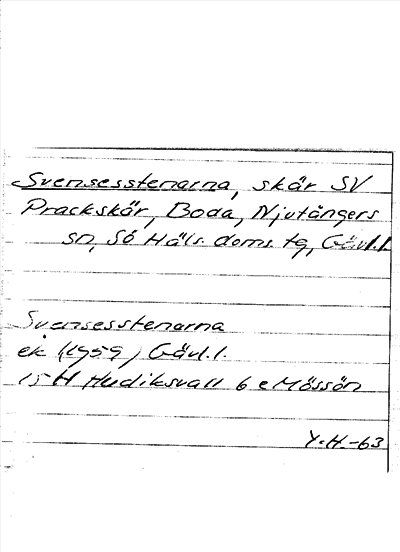 Svensesstenarna, skär SV
Prackskär, Boda, Njutångers
sn, Sö Häls. doms. tg, Gävl.l.
Svensesstenarna
ek (1959) Gävl.l.
15H Hudiksvall 6 e Mössön
Y.H.-63